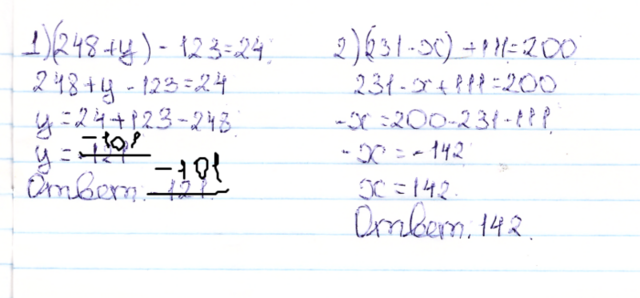 1)(248+y)-123=24
248+y-123=24
y=24+123-248
y=-101
Ответ: -101
2)(231-x)+111=200
231-x+111=200
-x=200-231-111
-x=-142
x=142
Ответ: 142.